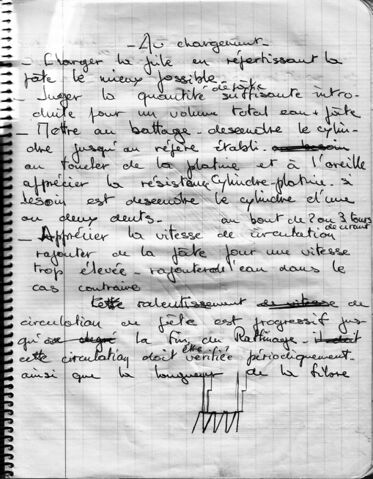 - Au chargement -
- Charger la pile en répartissant la
pâte le mieux possible.
- Juger la quantité de pâte suffisante intro-
duite pour un volume total eau + pâte
- Mettre au battage - descendre le cylin-
dre jusqu'au repère établi - au besoin
au toucher de la platine et à l'oreille
apprécier la résistance Cylindre-platine. si
besoin est descendre le cylindre d'une
ou deux dents. au bout de 2 ou 3 tours
- Apprécier la vitesse de circulation
rajouter de la pâte pour une vitesse
trop élevée - rajouter de l'eau dans le
cas contraire
Cette ralentissement de vitesse de
circulation en pâte est progressif jus
qu'à la fin du Raffinage - il doit
cette circulation doit être vérifiée périodiquement
ainsi que la longueur de la fibre